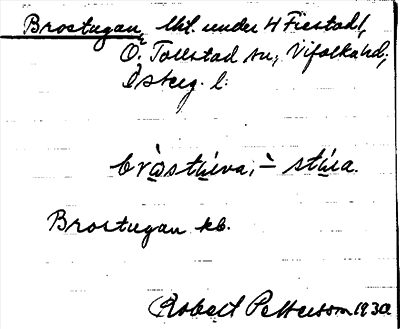 Brostugan, lht. under 4 Fiestad,
Ö. Tollstad sn, Vifolka hd,
Österg. l.
bròstúva, ̀- stúa.
Brostugan kb.
Robert Petterson 1930